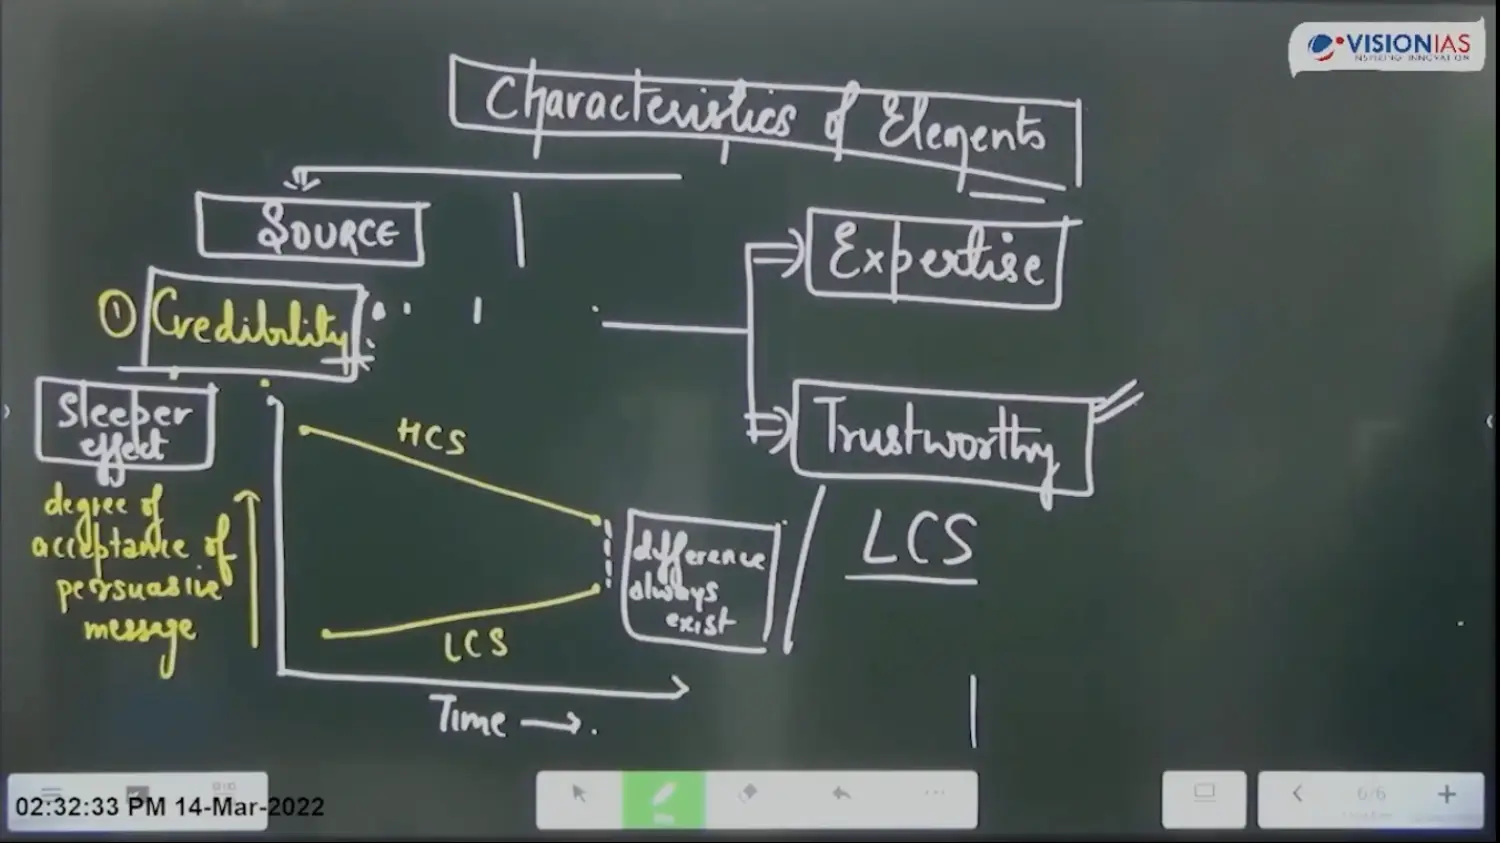 VISIONIAS
INSPIRING INNOVATION
Characteristics of Elements
SOURCE
Expertise
① Credibility
Sleeper
effect
HCS
Trustworthy
degree of
acceptance of
persuasive
message
difference
always
exist
LCS
LCS
Time
02:32:33 PM 14-Mar-2022
6/6